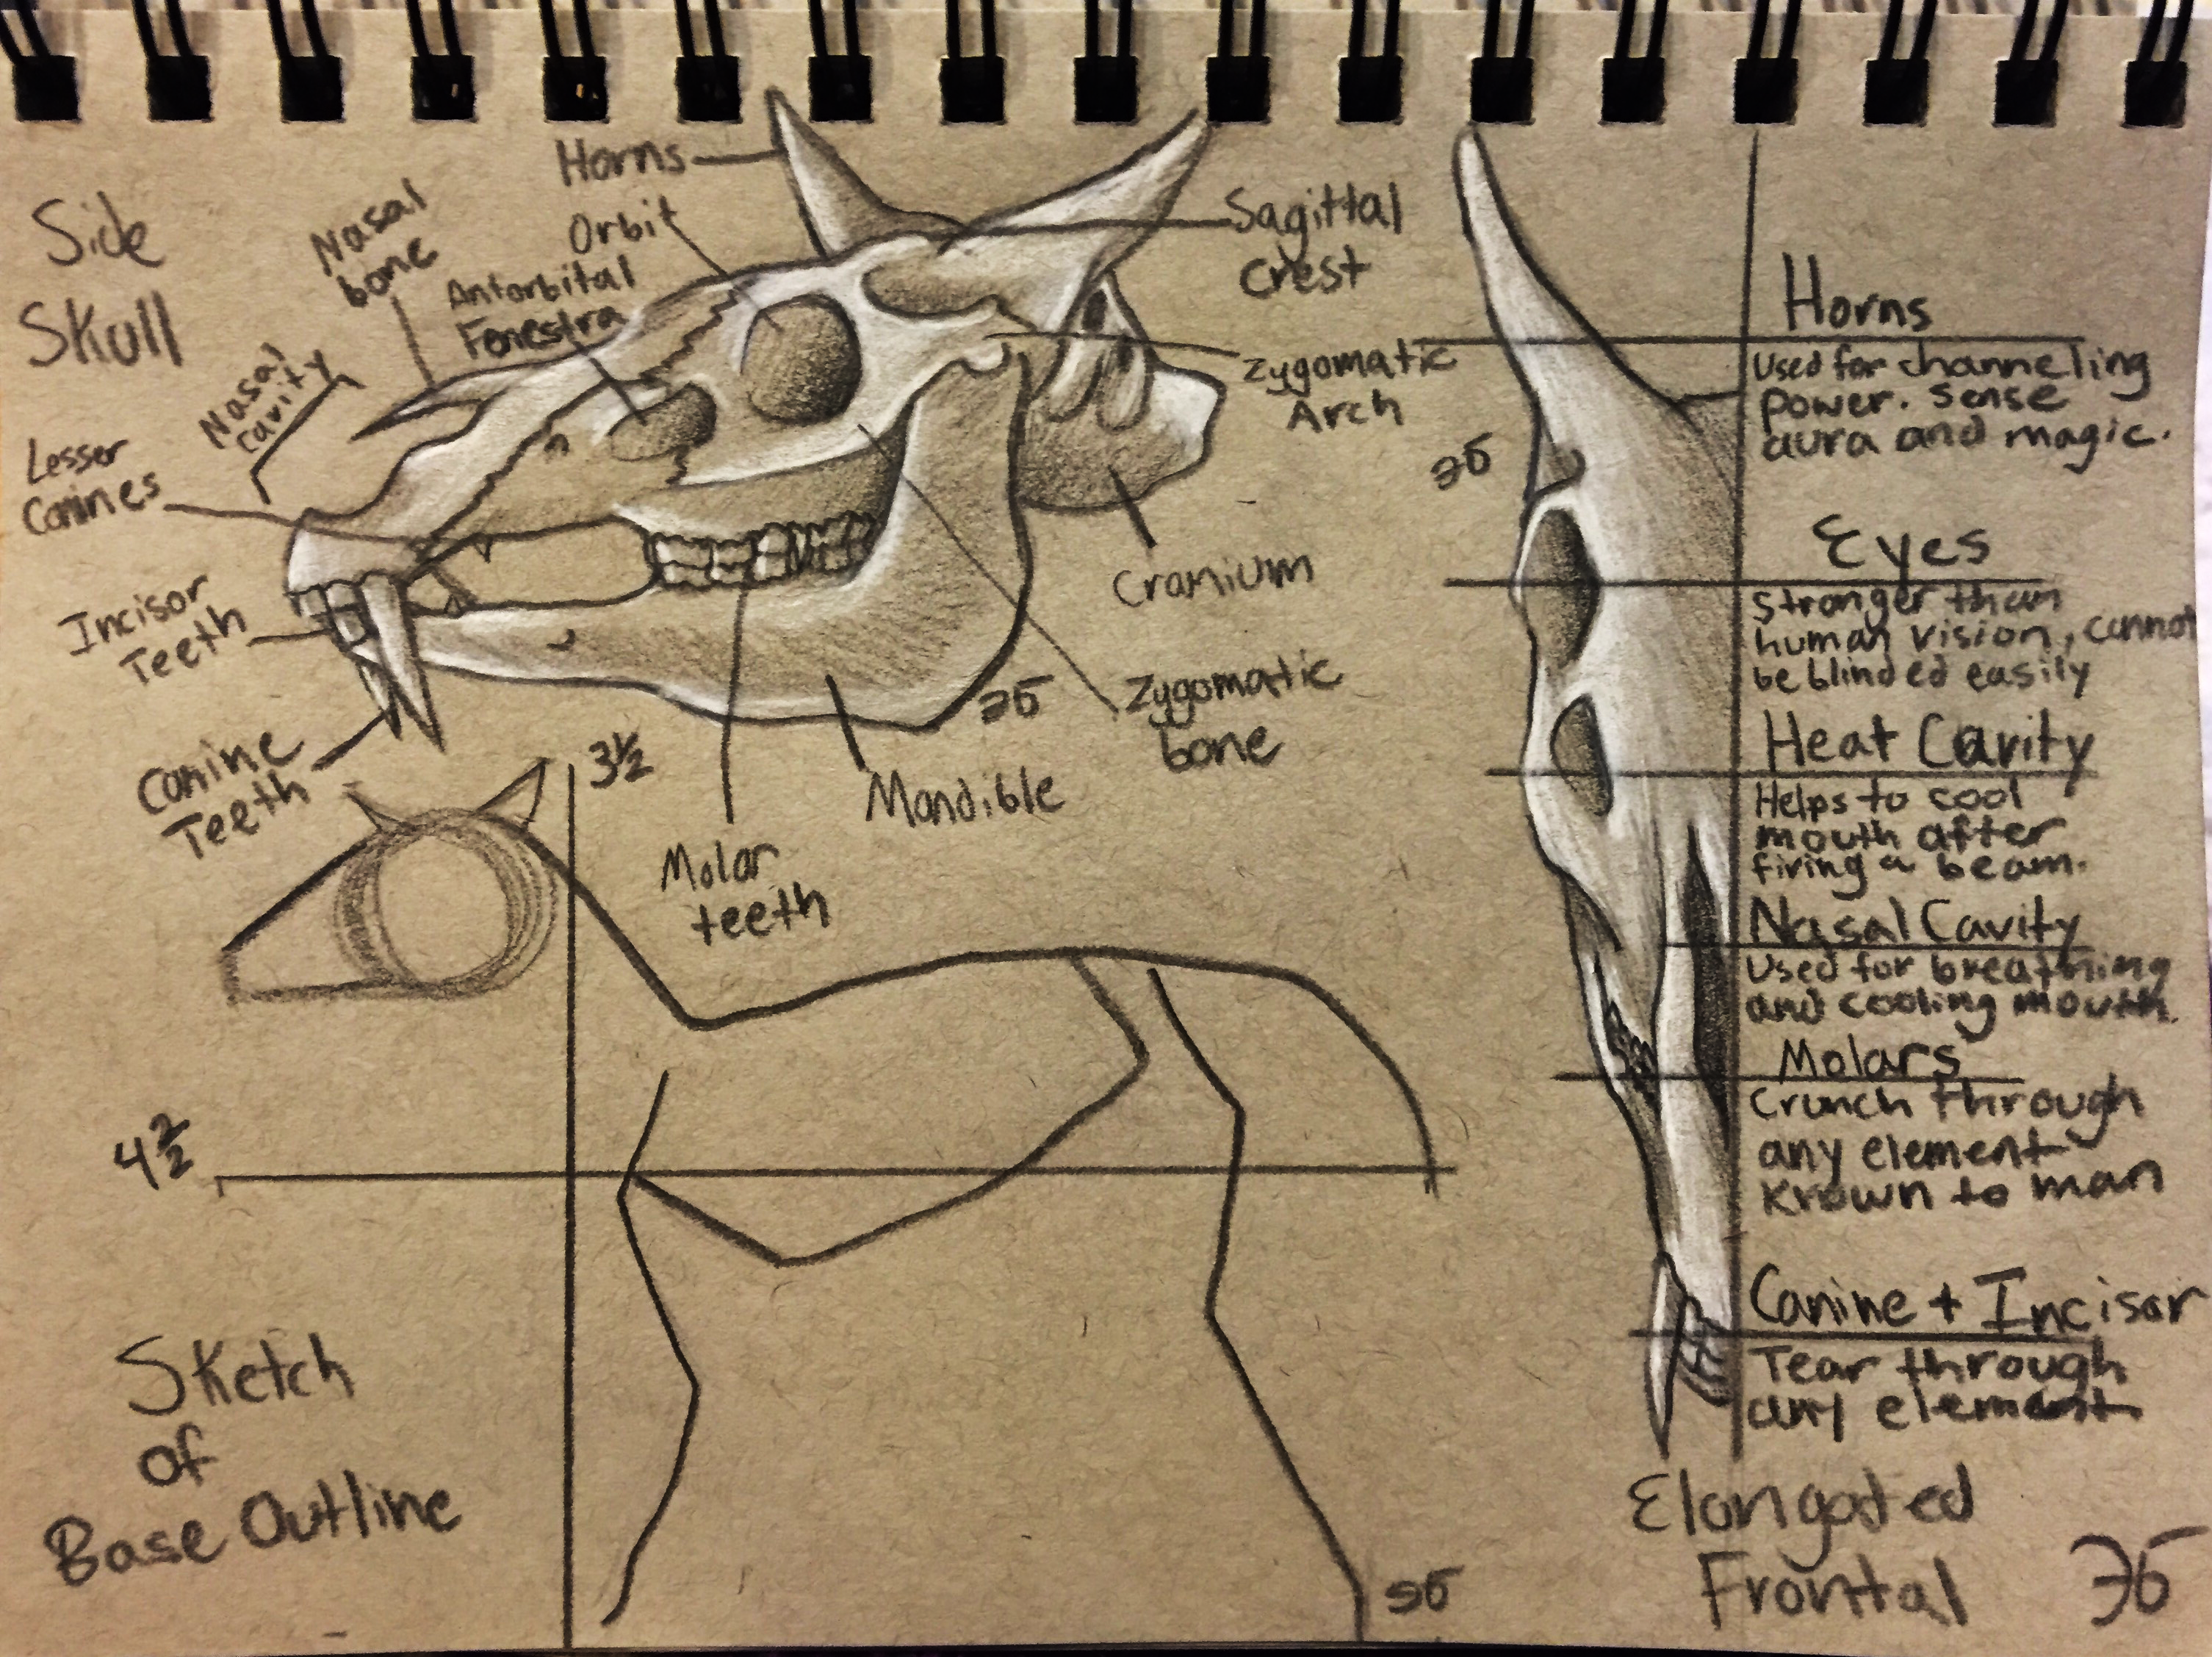 Side
Skull
Horns
Orbit
Nasal
bone
Antorbital
Fenestra
Nasal
Cavity
Lesser
Canines
Incisor
Teeth
Canine
Teeth
Sagittal
Crest
Zygomatic
Arch
Cranium
Zygomatic
bone
Mandible
Molar
teeth
3 1/2
4 2/2
Sketch
of
Base Outline
Horns
Used for channeling
power. Sense
aura and magic.
Eyes
Stronger than
human vision, cannot
be blinded easily
Heat Cavity
Helps to cool
mouth after
firing a beam.
Nasal Cavity
Used for breathing
and cooling mouth.
Molars
Crunch through
any element
known to man
Canine + Incisor
Tear through
any element
Elongated
Frontal